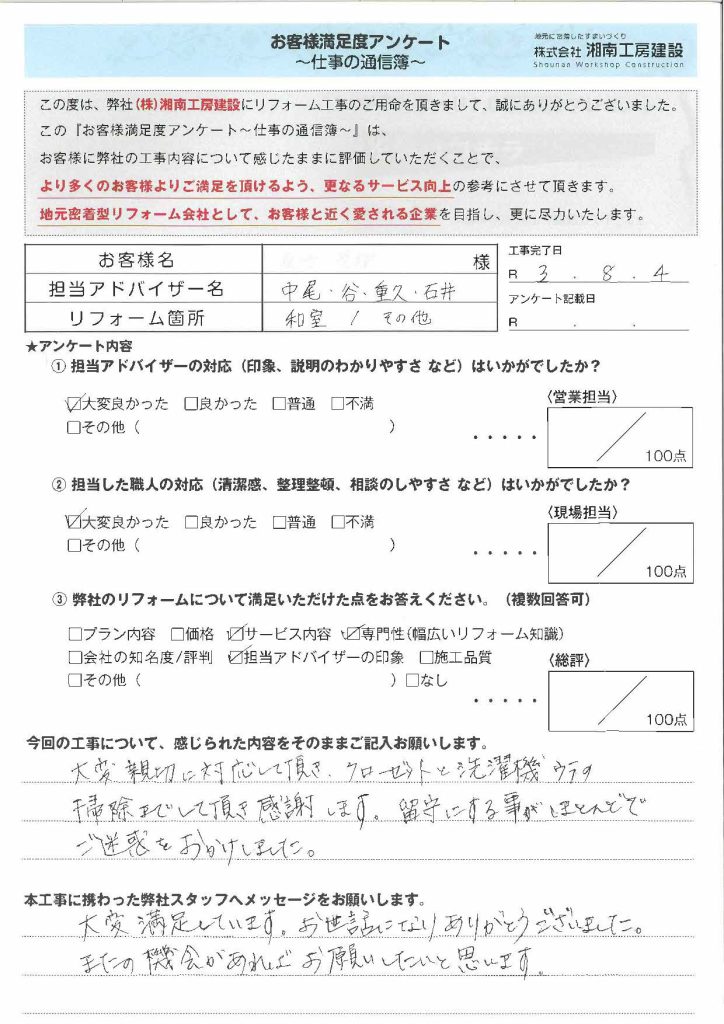 お客様満足度アンケート
~仕事の通信簿~
地元に密着したすまいづくり
株式会社 湘南工房建設
Shounan Workshop Construction
この度は、弊社(株)湘南工房建設にリフォーム工事のご用命を頂きまして、誠にありがとうございました。
この『お客様満足度アンケート~仕事の通信簿~』は、
お客様に弊社の工事内容について感じたままに評価していただくことで、
より多くのお客様よりご満足を頂けるよう、更なるサービス向上の参考にさせて頂きます。
地元密着型リフォーム会社として、お客様と近く愛される企業を目指し、更に尽力いたします。
お客様名 様
担当アドバイザー名 中尾・谷・重久・石井
リフォーム箇所 和室 / その他
工事完了日
R 3 . 8 . 4
アンケート記載日
R . .
★アンケート内容
① 担当アドバイザーの対応(印象、説明のわかりやすさ など)はいかがでしたか?
☑大変良かった □良かった □普通 □不満
□その他( )
・・・・・
〈営業担当〉
/ 100点
② 担当した職人の対応(清潔感、整理整頓、相談のしやすさ など)はいかがでしたか?
☑大変良かった □良かった □普通 □不満
□その他( )
・・・・・
〈現場担当〉
/ 100点
③ 弊社のリフォームについて満足いただけた点をお答えください。(複数回答可)
□プラン内容 □価格 ☑サービス内容 ☑専門性(幅広いリフォーム知識)
□会社の知名度/評判 ☑担当アドバイザーの印象 □施工品質
□その他( )□なし
・・・・・
〈総評〉
/ 100点
今回の工事について、感じられた内容をそのままご記入お願いします。
大変親切に対応して頂き、クローゼットと洗濯機ウラの
掃除までして頂き感謝します。留守にする事がほとんどで
ご迷惑をおかけしました。
本工事に携わった弊社スタッフへメッセージをお願いします。
大変満足しています。お世話になりありがとうございました。
またの機会があればお願いしたいと思います。